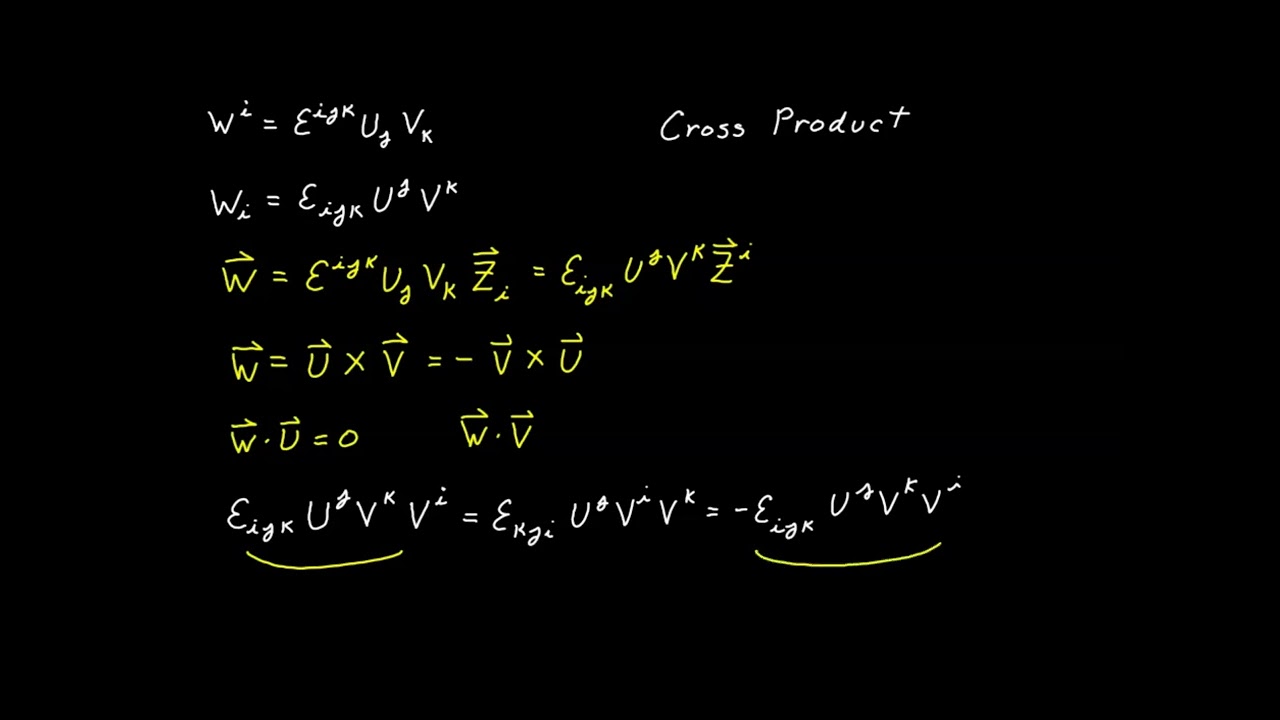 Wⁱ = εⁱʲᵏ Uⱼ Vₖ Cross Product
Wᵢ = εᵢⱼₖ Uʲ Vᵏ
W⃗ = εⁱʲᵏ Uⱼ Vₖ Z⃗ᵢ = εᵢⱼₖ Uʲ Vᵏ Z⃗ⁱ
W⃗ = U⃗ × V⃗ = - V⃗ × U⃗
W⃗ · U⃗ = 0 W⃗ · V⃗
εᵢⱼₖ Uʲ Vᵏ Vⁱ = εₖⱼᵢ Uʲ Vⁱ Vᵏ = - εᵢⱼₖ Uʲ Vᵏ Vⁱ